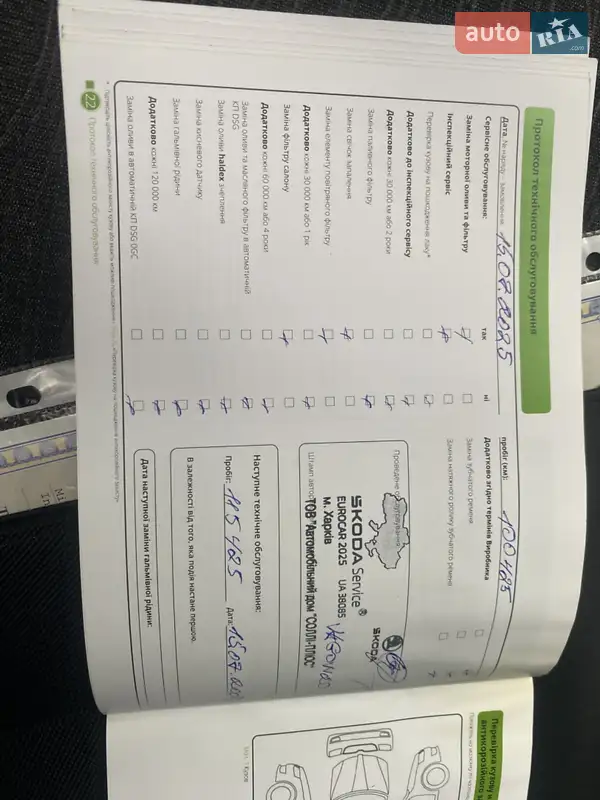 auto RIA.com
Протокол технічного обслуговування
Дата, № наряду - замовлення: 15.07.2025
пробіг (км): 100485
Сервісне обслуговування:
так
ні
Заміна моторної оливи та фільтру
Інспекційний сервіс
Перевірка кузову на пошкодження лаку*
Додатково до інспекційного сервісу
Додатково кожні 30 000 км або 2 роки
Заміна паливного фільтру
Заміна свічок запалення
Заміна елементу повітряного фільтру
Додатково кожні 30 000 км або 1 рік
Заміна фільтру салону
Додатково кожні 60 000 км або 4 роки
Заміна оливи та масляного фільтру в автоматичній
КП DSG
Заміна оливи haldex зчеплення
Заміна кисневого датчику
Заміна гальмівної рідини
Додатково кожні 120 000 км
Заміна оливи в автоматичній КП DSG 0GC
Додатково згідно термінів Виробника
Заміна зубчатого ременя
Заміна натяжного ролику зубчатого ременя
Проведене обслуговування
ŠKODA Service®
ŠKODA
EUROCAR 2025 UA 38085
м. Харків
ТОВ "Автомобільний дім "СОЛЛІ-ПЛЮС"
Штамп
Наступне технічне обслуговування:
Пробіг: 115 485 Дата: 15.07.
В залежності від того, яка подія настане першою.
Дата наступної заміни гальмівної рідини:
22 Протокол технічного обслуговування
Перевірка кузову
антикорозійного